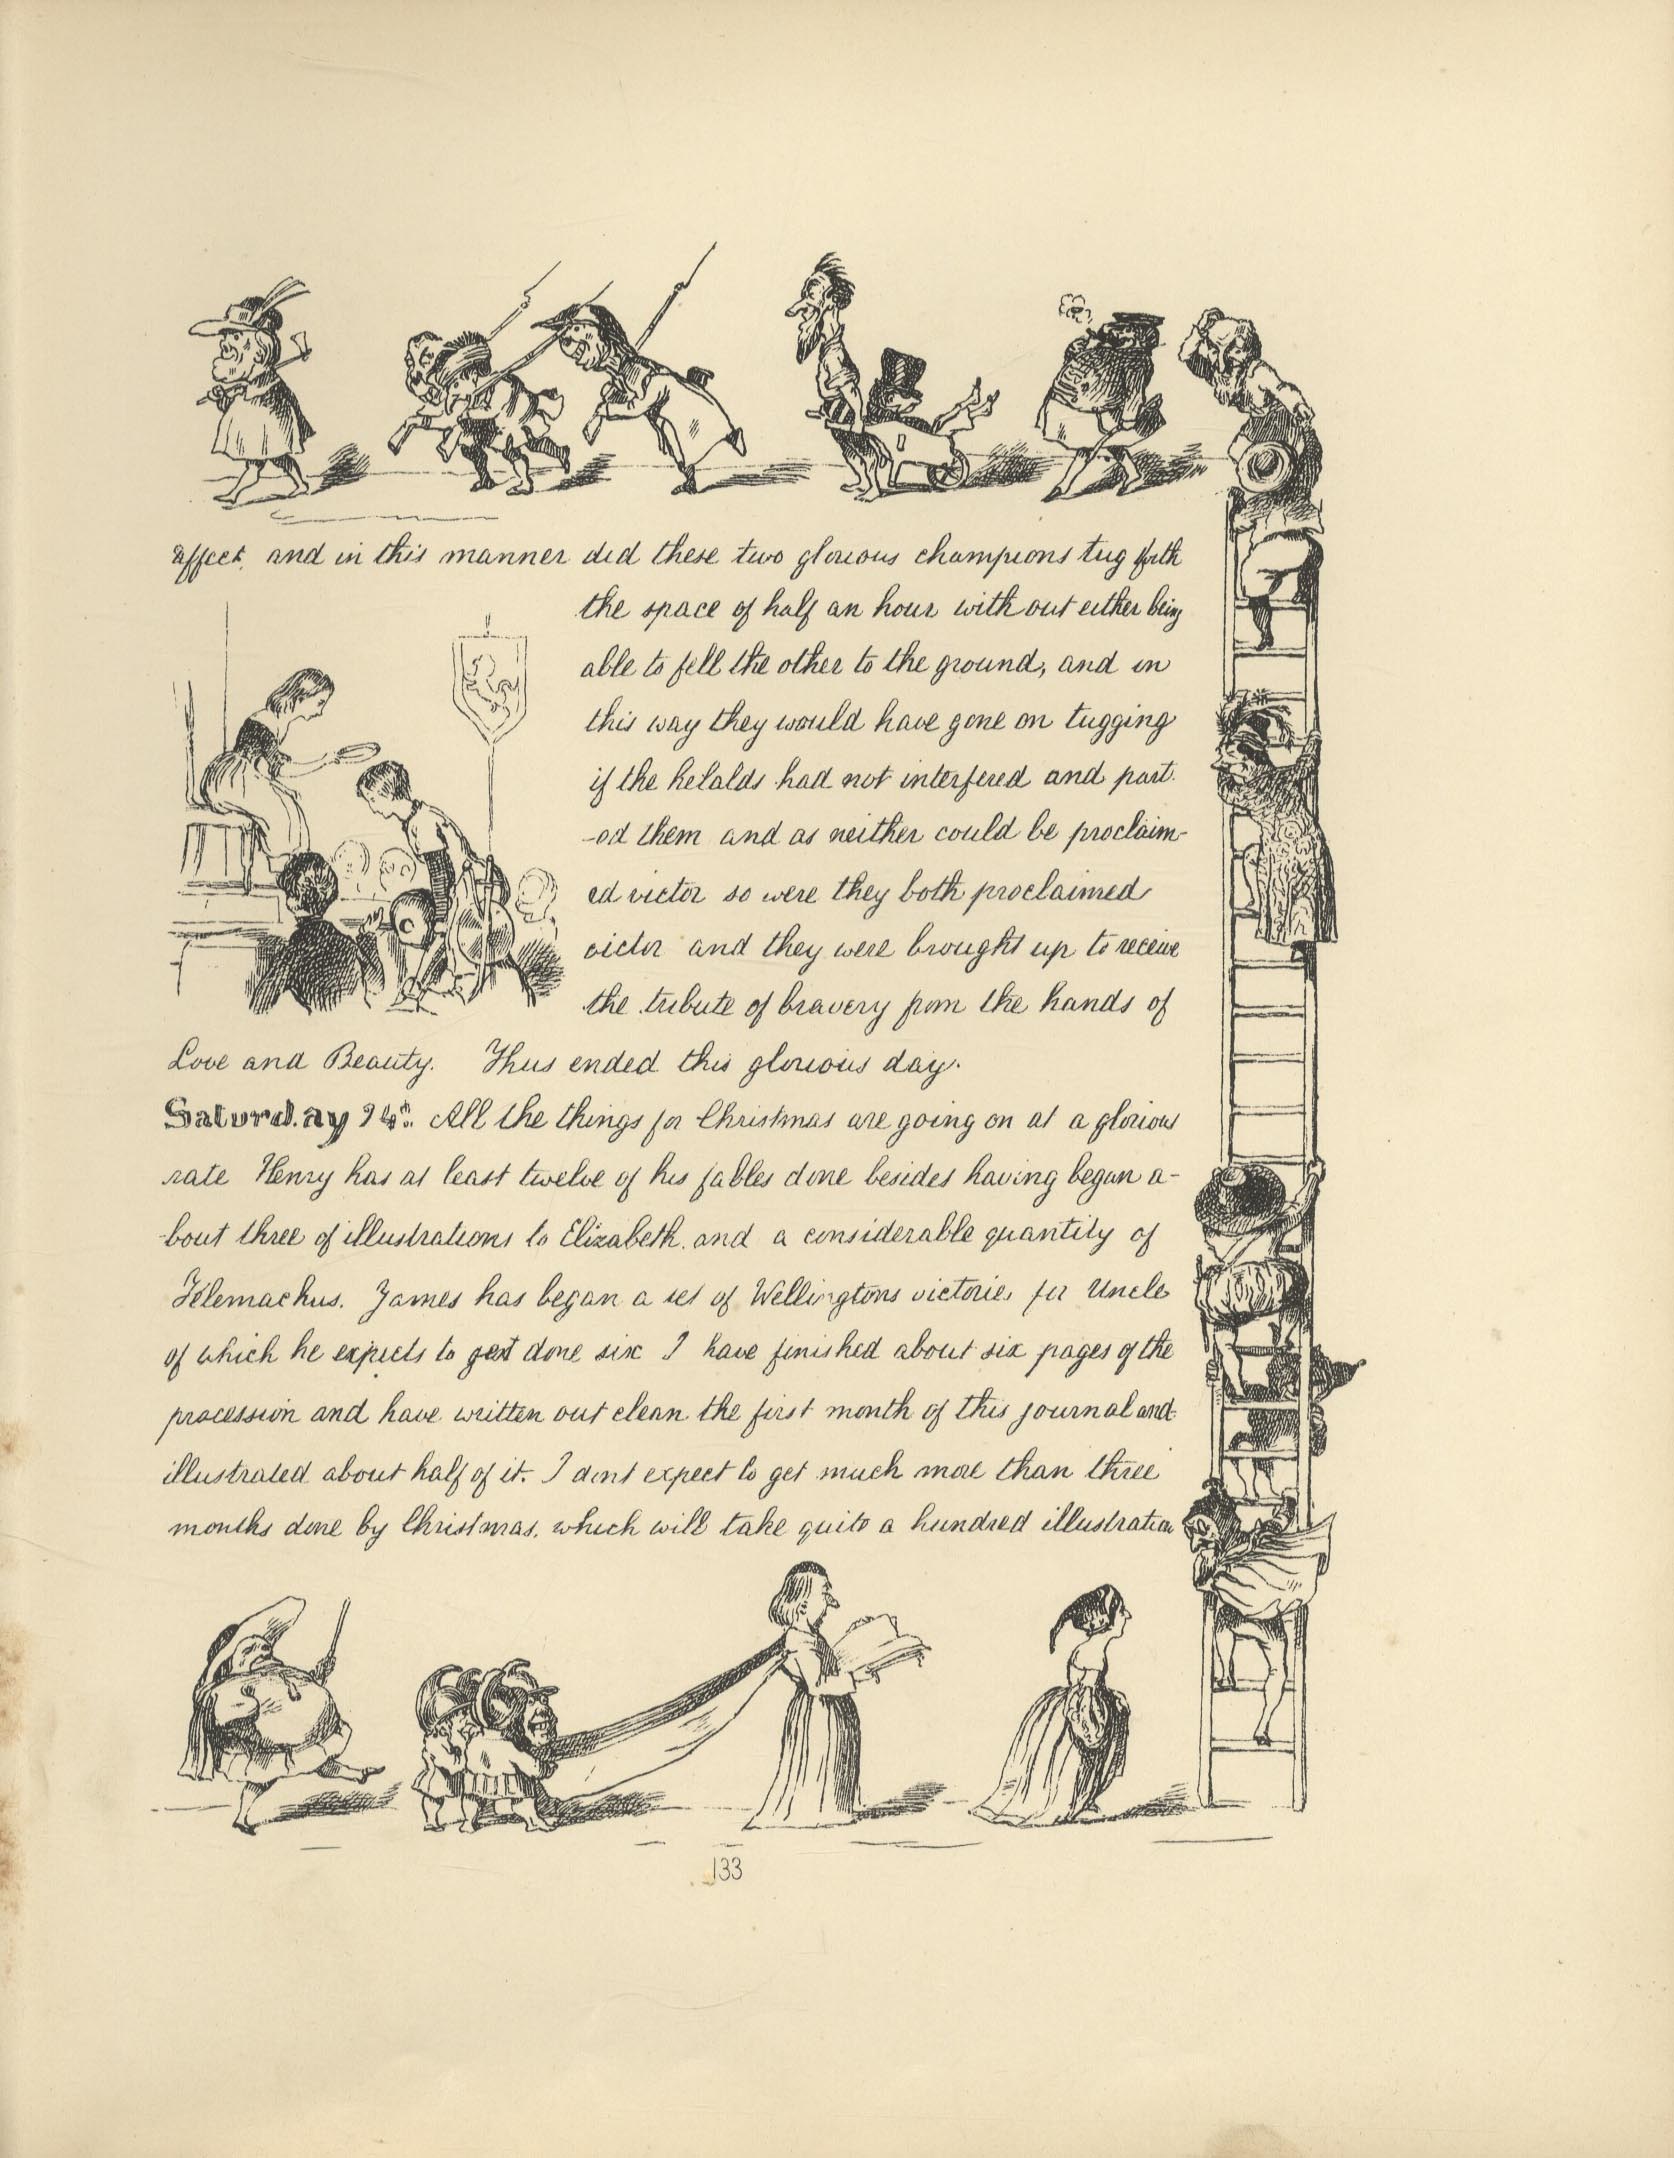 affect, and in this manner did these two glorious champions tug forth
the space of half an hour with out either being
able to fell the other to the ground, and in
this way they would have gone on tugging
if the helalds had not interfered and part-
-ed them and as neither could be proclaim-
ed victor so were they both proclaimed
victor and they were brought up to receive
the tribute of bravery from the hands of
Love and Beauty. Thus ended this glorious day.
Saturday 14th. All the things for Christmas are going on at a glorious
rate Henry has at least twelve of his fables done besides having began a-
-bout three of illustrations to Elizabeth. and a considerable quantity of
Telemachus. James has began a set of Wellingtons victories for Uncle
of which he expects to get done six I have finished about six pages of the
procession and have written out clean the first month of this journal and
illustrated about half of it. I dont expect to get much more than three
months done by Christmas, which will take quite a hundred illustration
133